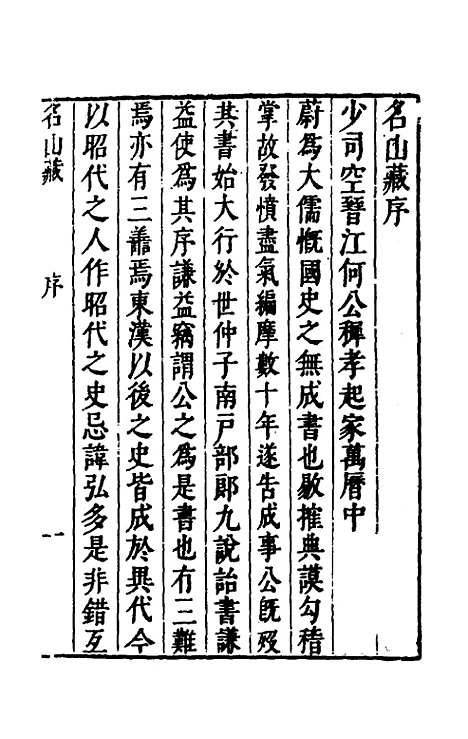 名山藏序
少司空晉江何公穉孝起家萬曆中
蔚爲大儒慨國史之無成書也敭搉典謨勾稽
掌故發憤盡氣編摩數十年遂告成事公旣歿
其書始大行於世仲子南戸部郞九說詒書謙
益使爲其序謙益竊謂公之爲是書也有三難
焉亦有三善焉東漢以後之史皆成於異代今
以昭代之人作昭代之史忌諱弘多是非錯互
名山藏
序
一